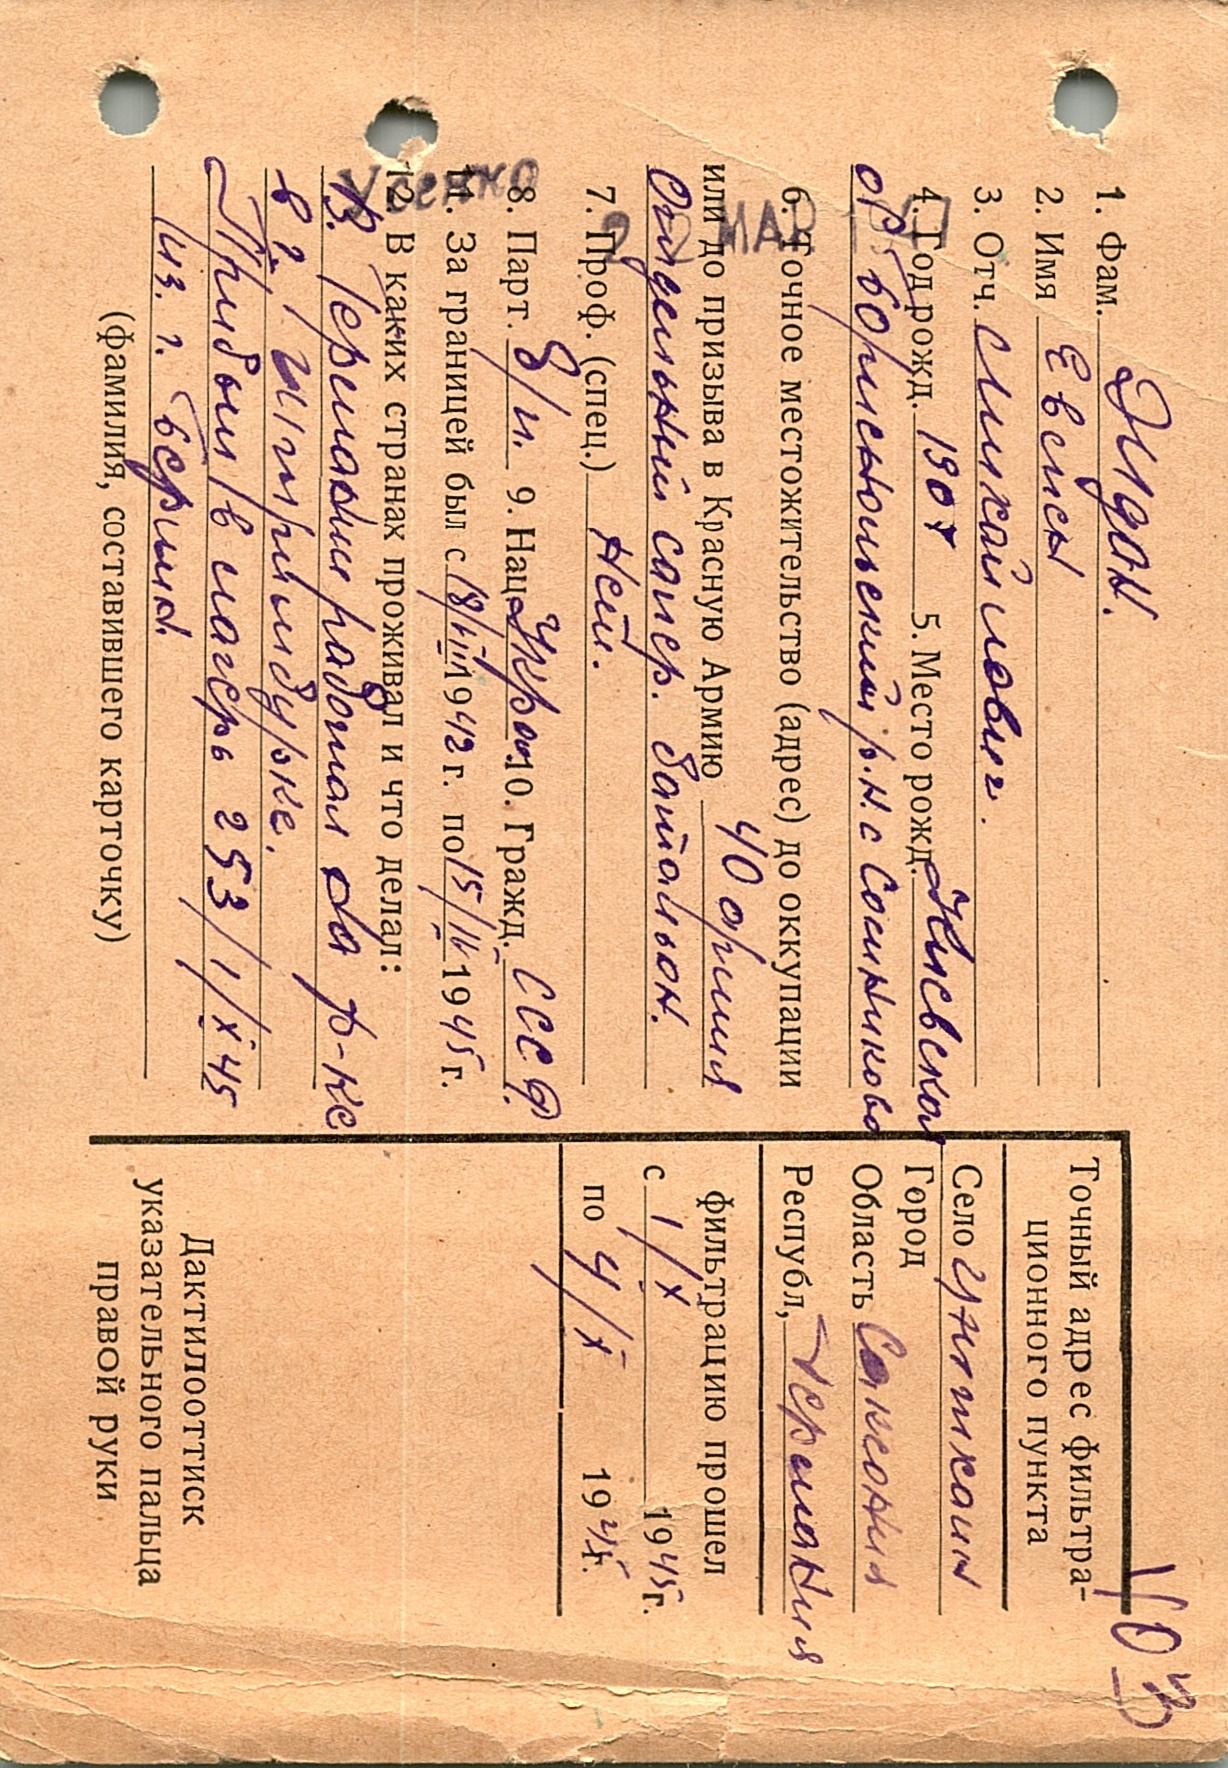 1. Фам. Жидан.
2. Имя Евсей
3. Отч. Михайлович.
4. Год рожд. 1907 5. Место рожд. Киевской
обл. бориспольский р.н. с Сошниково
6. Точное местожительство (адрес) до оккупации
или до призыва в Красную Армию 40 армия
Отдельный сапер. батальон.
7. Проф. (спец.) Нет.
22 МАР 47
8. Парт. б/п. 9. Нац. Укр 10. Гражд. СССР.
11. За границей был с 18/VIII 1942 г. по 15/IX 1945 г.
12. В каких странах проживал и что делал:
Усенко
В. Германии работал на ф-ке
в г.
Прибыл в лагерь 253 / 1/X 45
из. г. Берлин.
(фамилия, составившего карточку)
403
Точный адрес фильтра-
ционного пункта
Село
Город
Область Саксония
Республ, Германия
фильтрацию прошел
с 1/X 1945 г.
по 4/X 1945 г.
Дактилооттиск
указательного пальца
правой руки